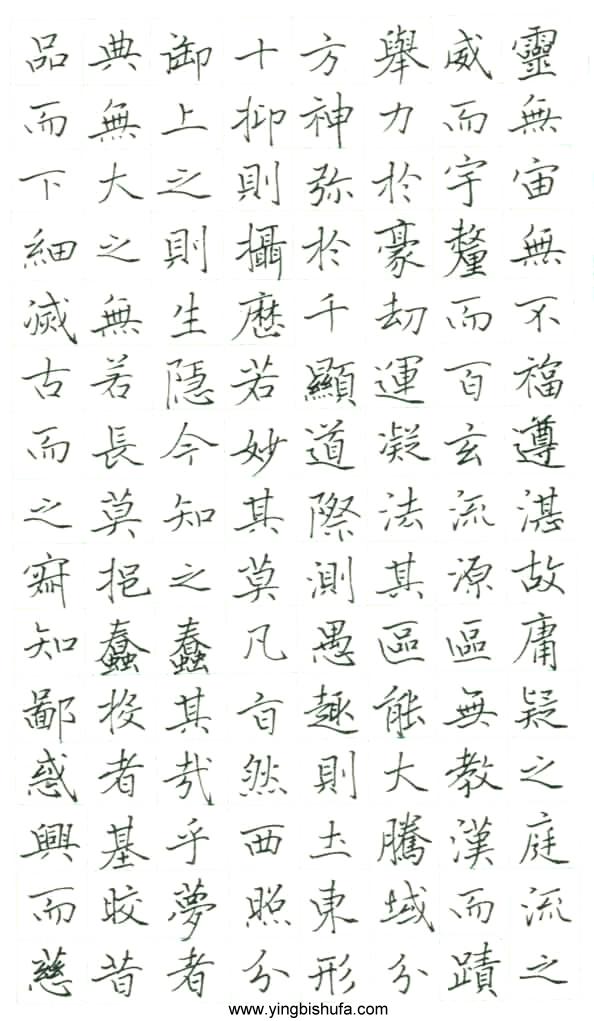 品典御十方舉威靈
而無上抑神力而無
下大之則弥於宇宙
細之則攝於豪釐無
滅無生歷千劫而不
古若隱若顯運百福
而長今妙道凝玄遵
之莫知其際法流湛
寂挹之莫測其源故
知蠢蠢凡愚區區庸
鄙投其旨趣能無疑
惑者哉然則大教之
興基乎西土騰漢庭
而皎夢照東域而流
慈昔者分形分蹟之
www.yingbishufa.com